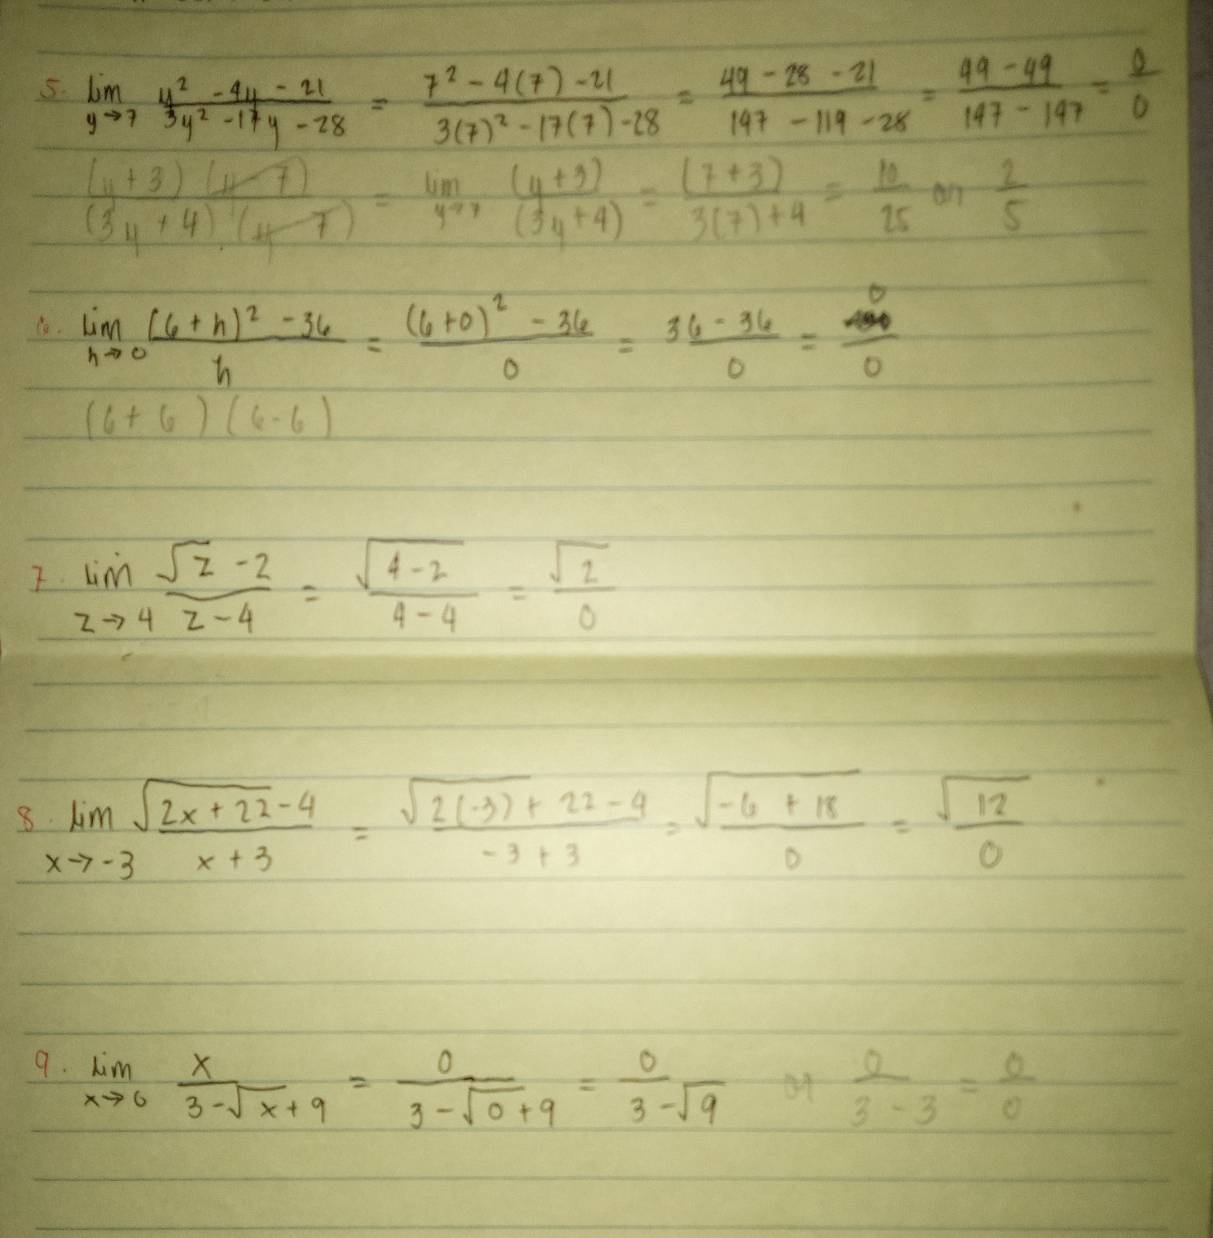 5. lim y→7 (y² - 4y - 21)/(3y² - 17y - 28) = (7² - 4(7) - 21)/(3(7)² - 17(7) - 28) = (49 - 28 - 21)/(147 - 119 - 28) = (49 - 49)/(147 - 147) = 0/0
((y + 3)(y - 7))/((3y + 4)(y - 7)) = lim y→7 (y + 3)/(3y + 4) = (7 + 3)/(3(7) + 4) = 10/25 or 2/5
6. lim h→0 ((6 + h)² - 36)/h = ((6 + 0)² - 36)/0 = (36 - 36)/0 = 0/0
(6 + 6)(6 - 6)
7. lim z→4 (√z - 2)/(z - 4) = √(4 - 2)/(4 - 4) = √2/0
8. lim x→-3 (√(2x + 22) - 4)/(x + 3) = (√(2(-3)) + 22 - 4)/(-3 + 3) = √(-6 + 18)/0 = √12/0
9. lim x→0 x/(3 - √x + 9) = 0/(3 - √0 + 9) = 0/(3 - √9) or 0/(3 - 3) = 0/0